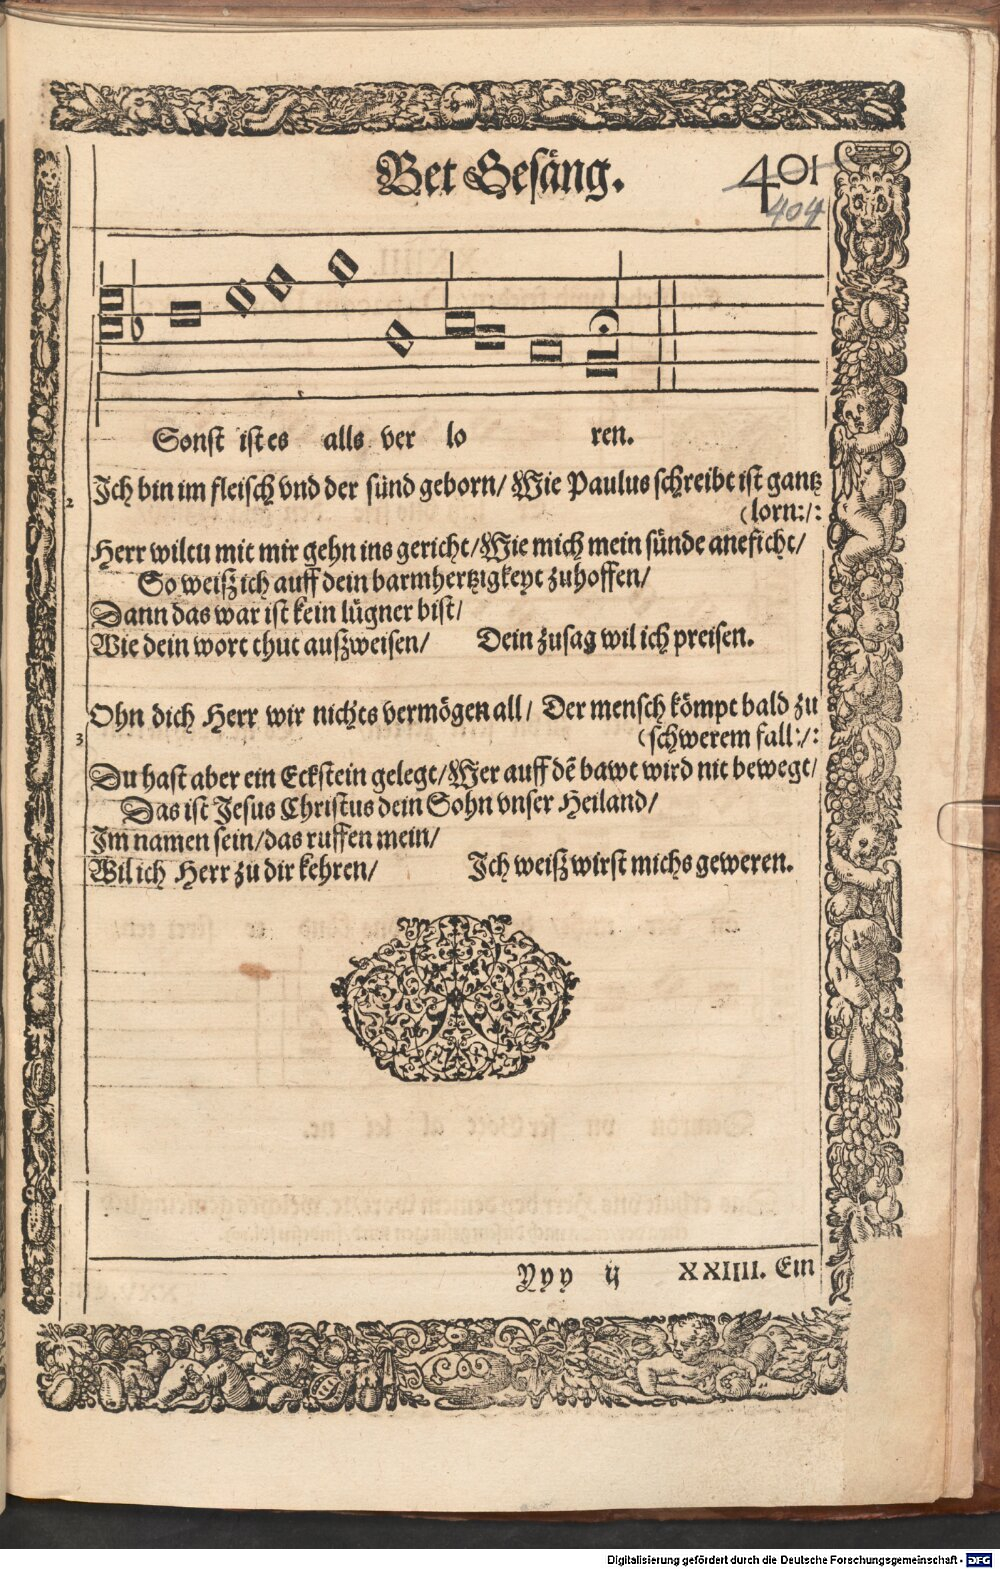 Bet Gesäng.
401
404
Sonst ist es alls ver lo ren.
2 Ich bin im fleisch vnd der sünd geborn/ Wie Paulus schreibt ist gantz
(lorn:/:
Herr wiltu mit mir gehn ins gericht/ Wie mich mein sünde aneficht/
So weiß ich auff dein barmhertzigkeyt zuhoffen/
Dann das war ist kein lügner bist/
Wie dein wort thut außweisen/ Dein zusag wil ich preisen.
3 Ohn dich Herr wir nichts vermögen all/ Der mensch kömpt bald zu
(schwerem fall:/:
Du hast aber ein Eckstein gelegt/ Wer auff dē bawt wird nit bewegt/
Das ist Jesus Christus dein Sohn vnser Heiland/
Im namen sein/ das ruffen mein/
Wil ich Herr zu dir kehren/ Ich weiß wirst michs geweren.
Yyy ij XXIIII. Ein
Digitalisierung gefördert durch die Deutsche Forschungsgemeinschaft - DFG